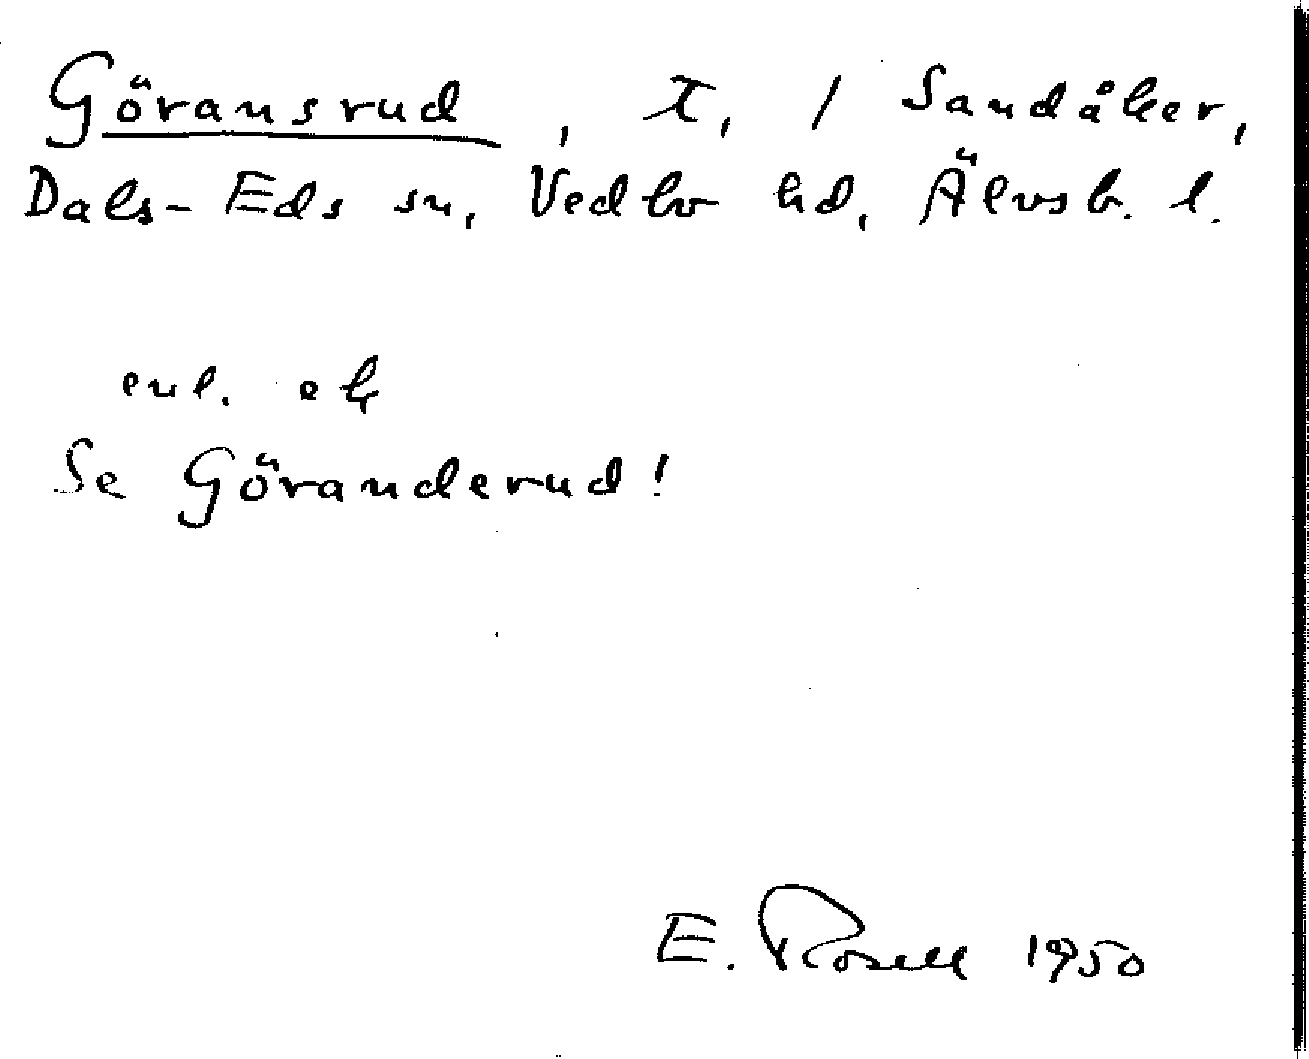 Göransrud, t, / Sandåker,
Dals-Eds sn, Vedbo hd, Älvsb. l.
enl. ek
Se Göranderud!
E. Rosell 1950